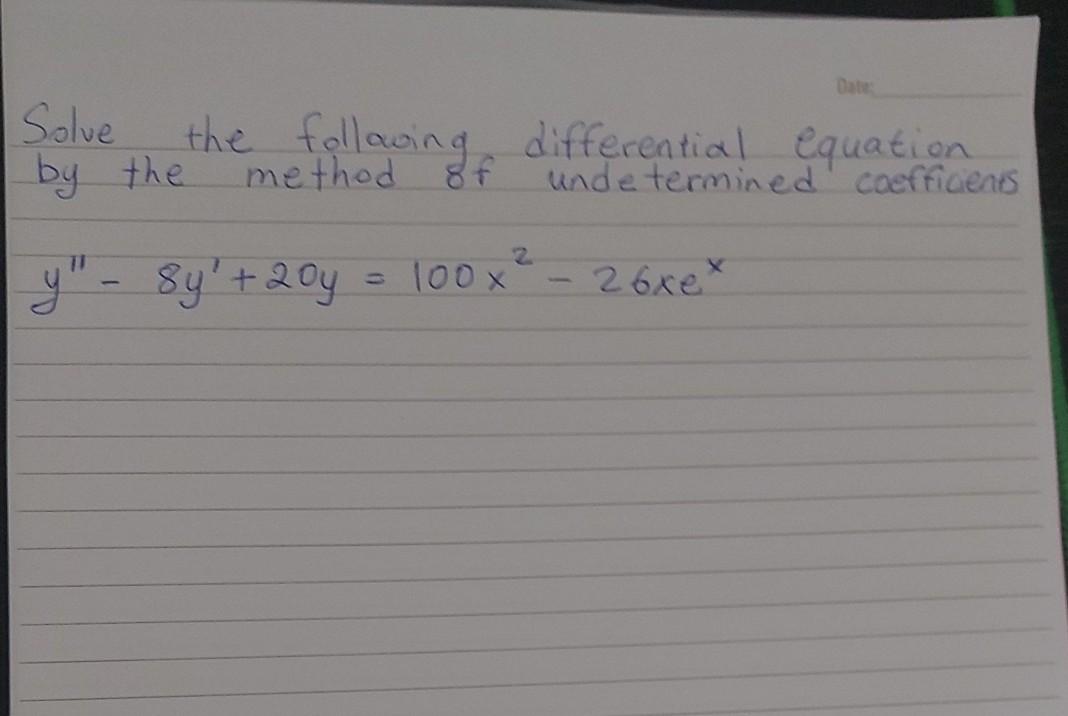 Date:
Solve the following differential equation
by the method of undetermined coefficients
y" - 8y' + 20y = 100x² - 26xeˣ